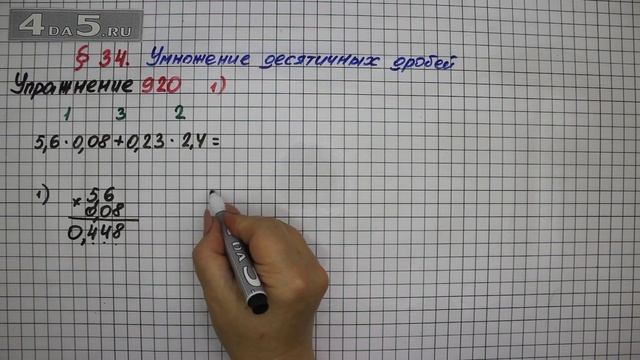 4DA5.RU
§ 34. Умножение десятичных дробей
Упражнение 920 1)
1 3 2
5,6 · 0,08 + 0,23 · 2,4 =
1) × 5,6
0,08
0,448
4DA5